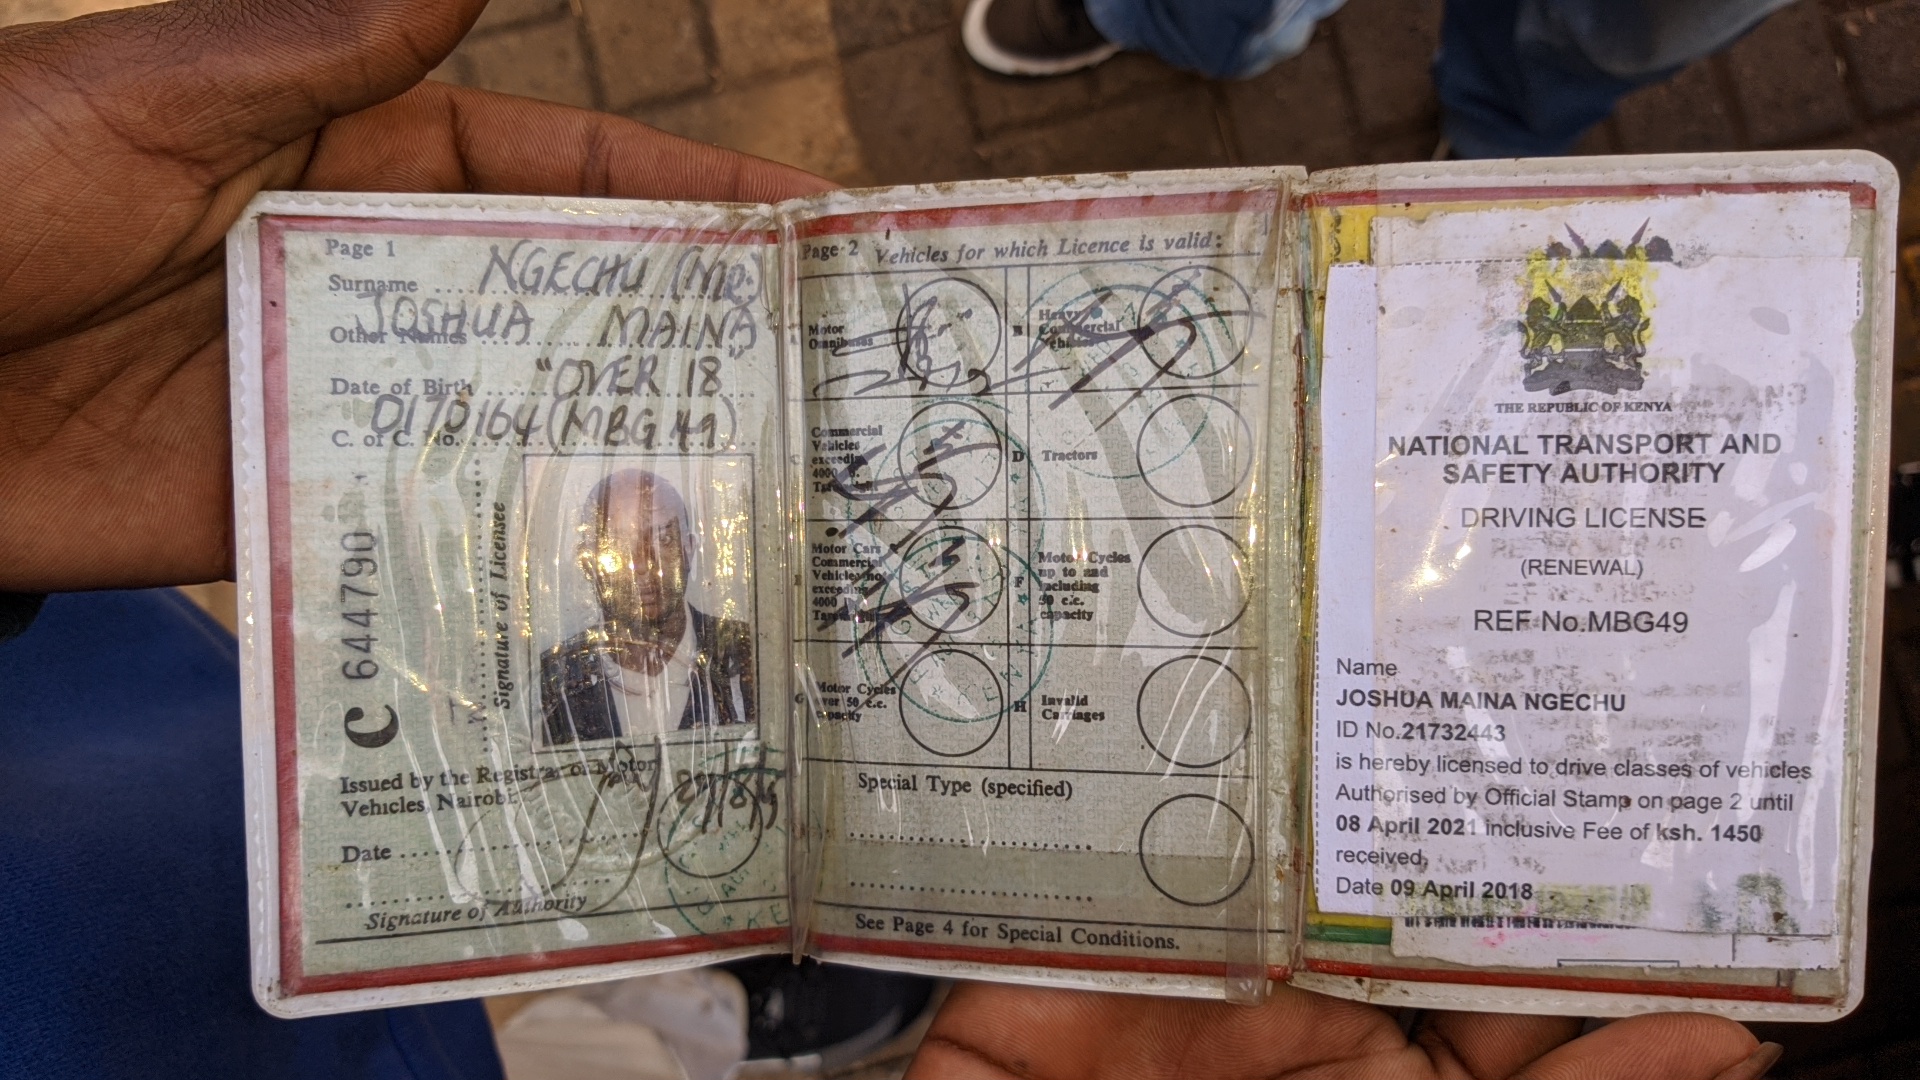 Page 1
Surname NGECHU (Mr.)
Other Names JOSHUA MAINA
Date of Birth "OVER 18"
C. of C. No. 0170164 (MBG 49)
C 644790
Signature of Licensee
Issued by the Registrar of Motor
Vehicles, Nairobi.
Date
Signature of Authority
Page 2 Vehicles for which Licence is valid:
Motor
Omnibuses
B Heavy
Commercial
Vehicles
C Commercial
Vehicles
exceeding
4000
D Tractors
E Motor Cars
Commercial
Vehicles not
exceeding
4000
F Motor Cycles
up to and
including
50 c.c.
capacity
G Motor Cycles
over 50 c.c.
capacity
H Invalid
Carriages
Special Type (specified)
See Page 4 for Special Conditions.
THE REPUBLIC OF KENYA
NATIONAL TRANSPORT AND
SAFETY AUTHORITY
DRIVING LICENSE
(RENEWAL)
REF No.MBG49
Name
JOSHUA MAINA NGECHU
ID No.21732443
is hereby licensed to drive classes of vehicles
Authorised by Official Stamp on page 2 until
08 April 2021 inclusive Fee of ksh. 1450
received,
Date 09 April 2018